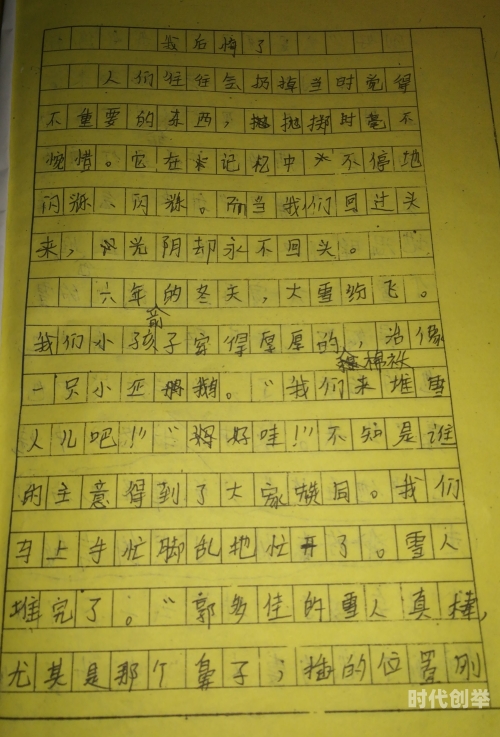 我后悔了
人们往往会扔掉当时觉得
不重要的东西，抛掷时毫不
惋惜。它在记忆中不停地
闪烁、闪烁。而当我们回过头
来，光阴却永不回头。
六年前的冬天，大雪纷飞。
我们小孩子穿得厚厚的棉袄，活像
一只小企鹅。“我们来堆雪
人儿吧！”“好哇！”不知是谁
的主意得到了大家赞同。我们
马上手忙脚乱地忙开了。雪人
堆完了。“郭多佳的雪人真棒，
尤其是那个鼻子；插的位置刚
时代创举